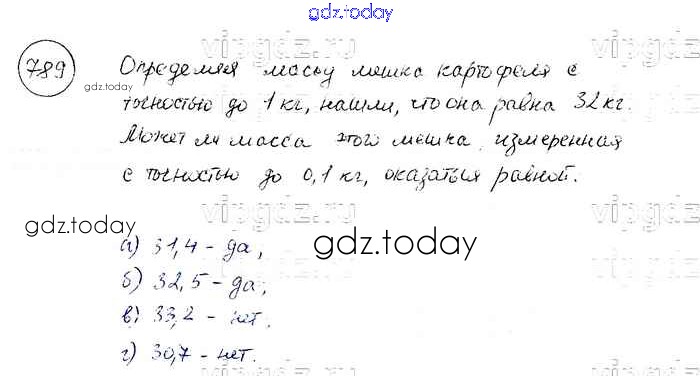 gdz.today
vipgdz.ru
789
Определяя массу мешка картофеля с
gdz.today
точностью до 1 кг, нашли, что она равна 32 кг.
vipgdz.ru
Может ли масса этого мешка, измеренная
с точностью до 0,1 кг, оказаться равной.
vipgdz.ru
gdz.today
а) 31,4 - да,
gdz.today
vipgdz.ru
б) 32,5 - да;
в) 33,2 - нет.
vipgdz.ru
г) 30,7 - нет.
gdz.today